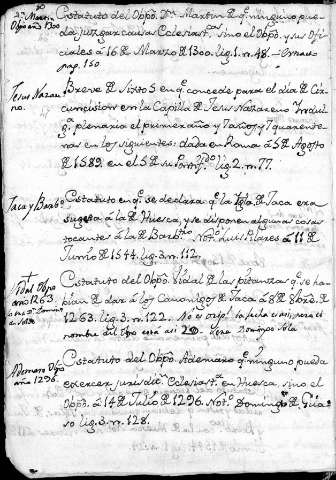 Dn Martin Obpo año 1300
Estatuto del Obpõ. Dn Martin qe. ninguno pue-
da juzgar causa Eclesiast. sino el Obpõ. y sus Ofi-
ciales á 16 Marzo de 1300. lig. 1. n. 48.
pag. 150
Jesus Nazareno.
Breve de Sixto 5 en qe. concede para el dia de Cir-
cuncision en la Capilla de Jesus Nazareno Indul-
ga. plenaria el primer año y 7 años, y 7 quarente-
nas en los siguientes: dada en Roma á 5 de Agosto
de 1589. en el 5 de su Pontifdo. lig. 2. n. 77.
Jaca y Barbo.
Estatuto en qe. se declara qe. la Iglã. de Jaca era
sugeta á la de Huesca, y se disponen algunas cosas
tocantes á la de Barbtro. Noto. Luis Pilares á 11 de
Junio de 1574. lig. 3. n. 112.
Vidal Obpo
año 1263.
Estatuto del Obpõ. Vidal de las pitanzas qe. se ha-
bian de dar á los Canonigos de Jaca á 8 de 8bre. de
1263. lig. 3. n. 122. No es origl. la fecha es asi, pero el
nombre del Obpo está asi Domingo Sola
Ademaro Obpo
año 1296.
Estatuto del Obpõ. Ademaro qe. ninguno pueda
exercer jurisdicn. Eclesiasta. en Huesca, sino el
Obpõ. á 14 de Julio de 1296. Noto. Domingo de Gua-
so lig. 3. n. 128.